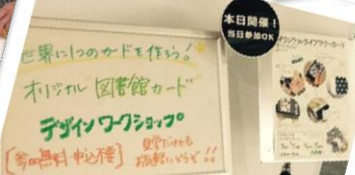 世界に1つのカードを作ろう!
オリジナル 図書館カード
デザインワークショップ
[参加無料 申込不要]
見学だけでも
お気軽にどうぞ!!
本日開催!
当日参加OK
オリジナルライブラリーカード